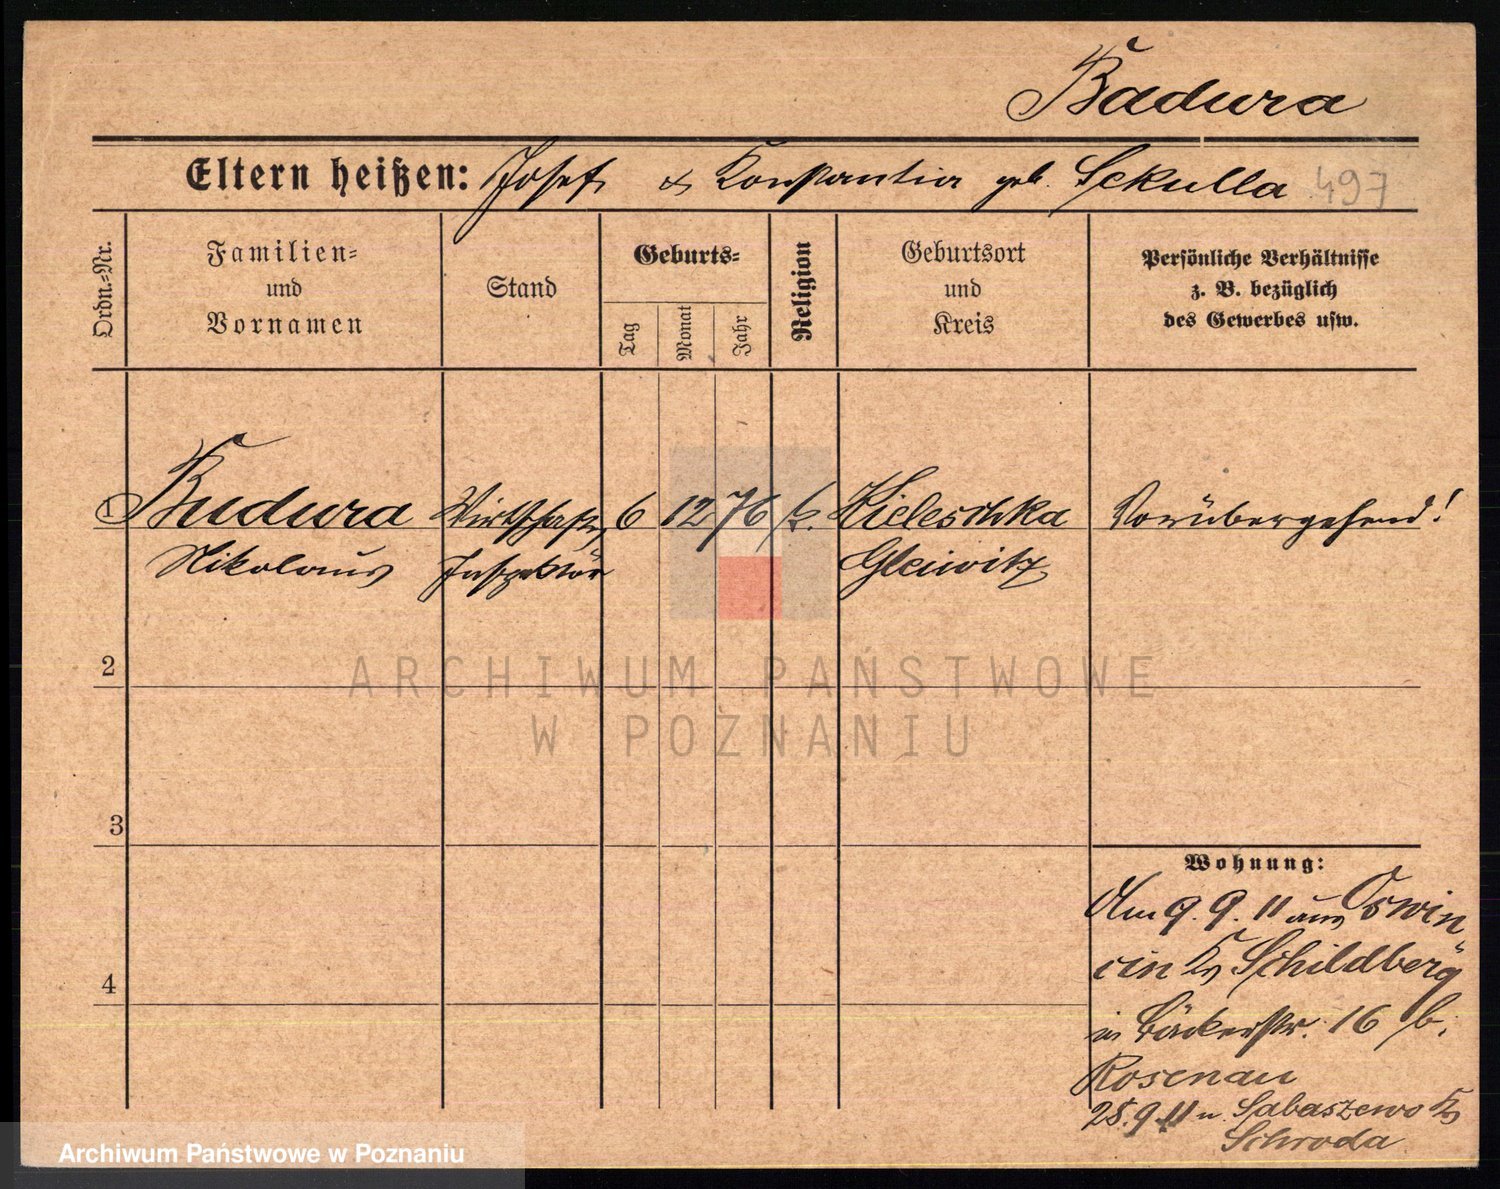 Badura
Eltern heißen: Josef & Konstantia geb. Sekulla 497
Ordn.-Nr.
Familien-
und
Vornamen
Stand
Geburts-
Tag
Monat
Jahr
Religion
Geburtsort
und
Kreis
Persönliche Verhältnisse
z. B. bezüglich
des Gewerbes usw.
1 Badura Wirtschafts 6 12 76 k. Kieleschka Vorübergehend!
Nikolaus Inspektor Gleiwitz
2
3
4
Wohnung:
Am 9.9.11 aus Oswin
cin Kr Schildberg
in Bäckerstr. 16 b.
Rosenau
25.9.11 n. Sabaszewo Kr
Schroda
ARCHIWUM PAŃSTWOWE
W POZNANIU
Archiwum Państwowe w Poznaniu